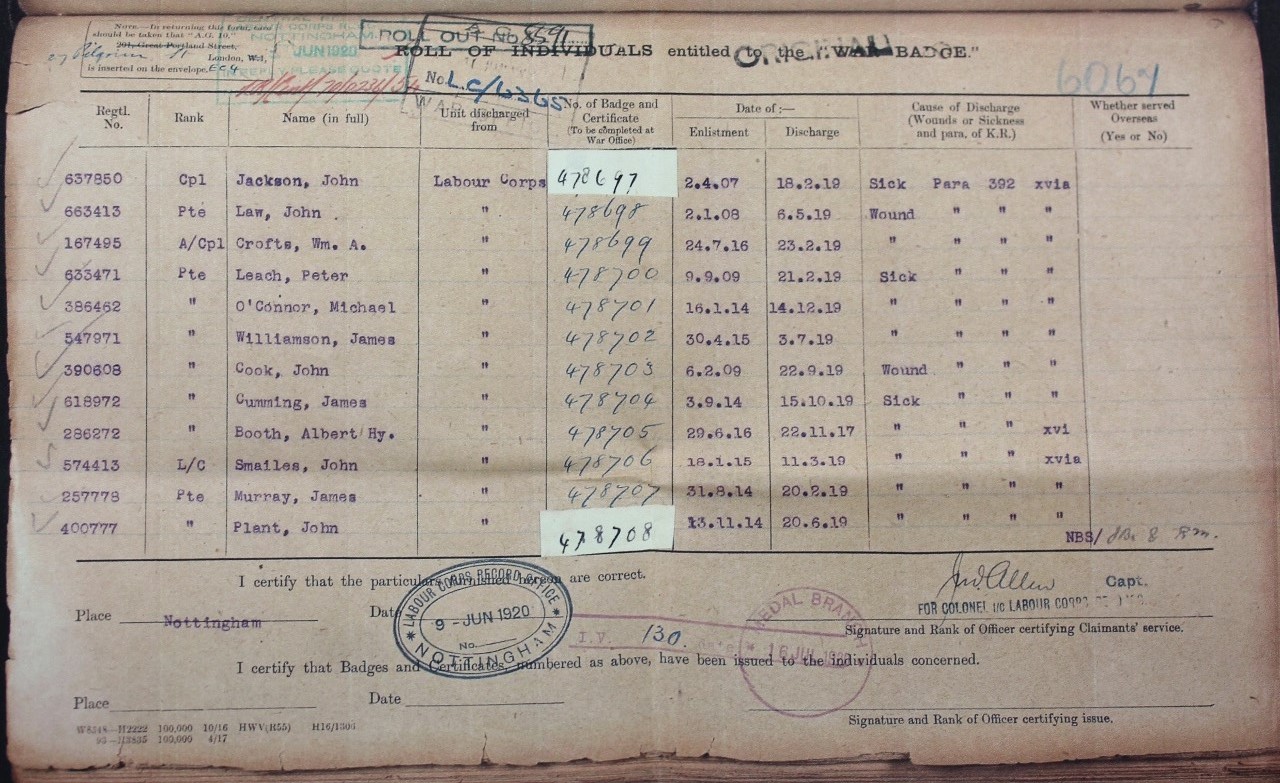 NOTE.—In returning this form, care
should be taken that "A.G. 10."
291, Great Portland Street,
27 Pilgrim St London, W.1,
is inserted on the envelope. EC4
CORPS
NOTTINGHAM
JUN 1920
REPLY PLEASE QUOTE
ROLL OUT No. 8591
No. L.C/6365
ORIGINAL
ROLL OF INDIVIDUALS entitled to the "WAR BADGE."
Regtl. No. Rank Name (in full) Unit discharged from No. of Badge and Certificate (To be completed at War Office) Date of :— Enlistment Discharge Cause of Discharge (Wounds or Sickness and para. of K.R.) Whether served Overseas (Yes or No)
637850 Cpl Jackson, John Labour Corps 478697 2.4.07 18.2.19 Sick Para 392 xvia
663413 Pte Law, John " 478698 2.1.08 6.5.19 Wound " " "
167495 A/Cpl Crofts, Wm. A. " 478699 24.7.16 23.2.19 " " " "
633471 Pte Leach, Peter " 478700 9.9.09 21.2.19 Sick " " "
386462 " O'Connor, Michael " 478701 16.1.14 14.12.19 " " " "
547971 " Williamson, James " 478702 30.4.15 3.7.19 " " " "
390608 " Cook, John " 478703 6.2.09 22.9.19 Wound " " "
618972 " Cumming, James " 478704 3.9.14 15.10.19 Sick " " "
286272 " Booth, Albert Hy. " 478705 29.6.16 22.11.17 " " " xvi
574413 L/C Smailes, John " 478706 18.1.15 11.3.19 " " " xvia
257778 Pte Murray, James " 478707 31.8.14 20.2.19 " " " "
400777 " Plant, John " 478708 13.11.14 20.6.19 " " " "
NBS/
I certify that the particulars furnished hereon are correct.
Jno Allen Capt.
FOR COLONEL I/C LABOUR CORPS
Place Nottingham Date
LABOUR CORPS RECORD OFFICE
9 - JUN 1920
No.
NOTTINGHAM
Signature and Rank of Officer certifying Claimants' service.
I.V. 130.
MEDAL BRANCH
16 JUL 1920
I certify that Badges and Certificates, numbered as above, have been issued to the individuals concerned.
Place Date
Signature and Rank of Officer certifying issue.
W8348—H2222 100,000 10/16 HWV(R55) H16/1306
93—H3835 100,000 4/17